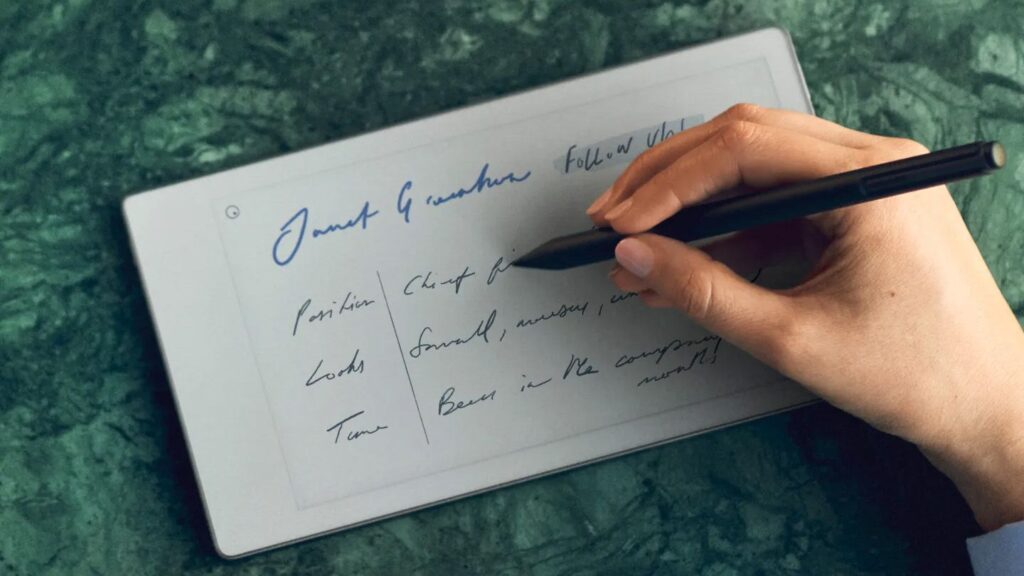 Janet
Follow up!
Position
Chief fi
Looks
Small, mousy,
Time
Been in the company
month!